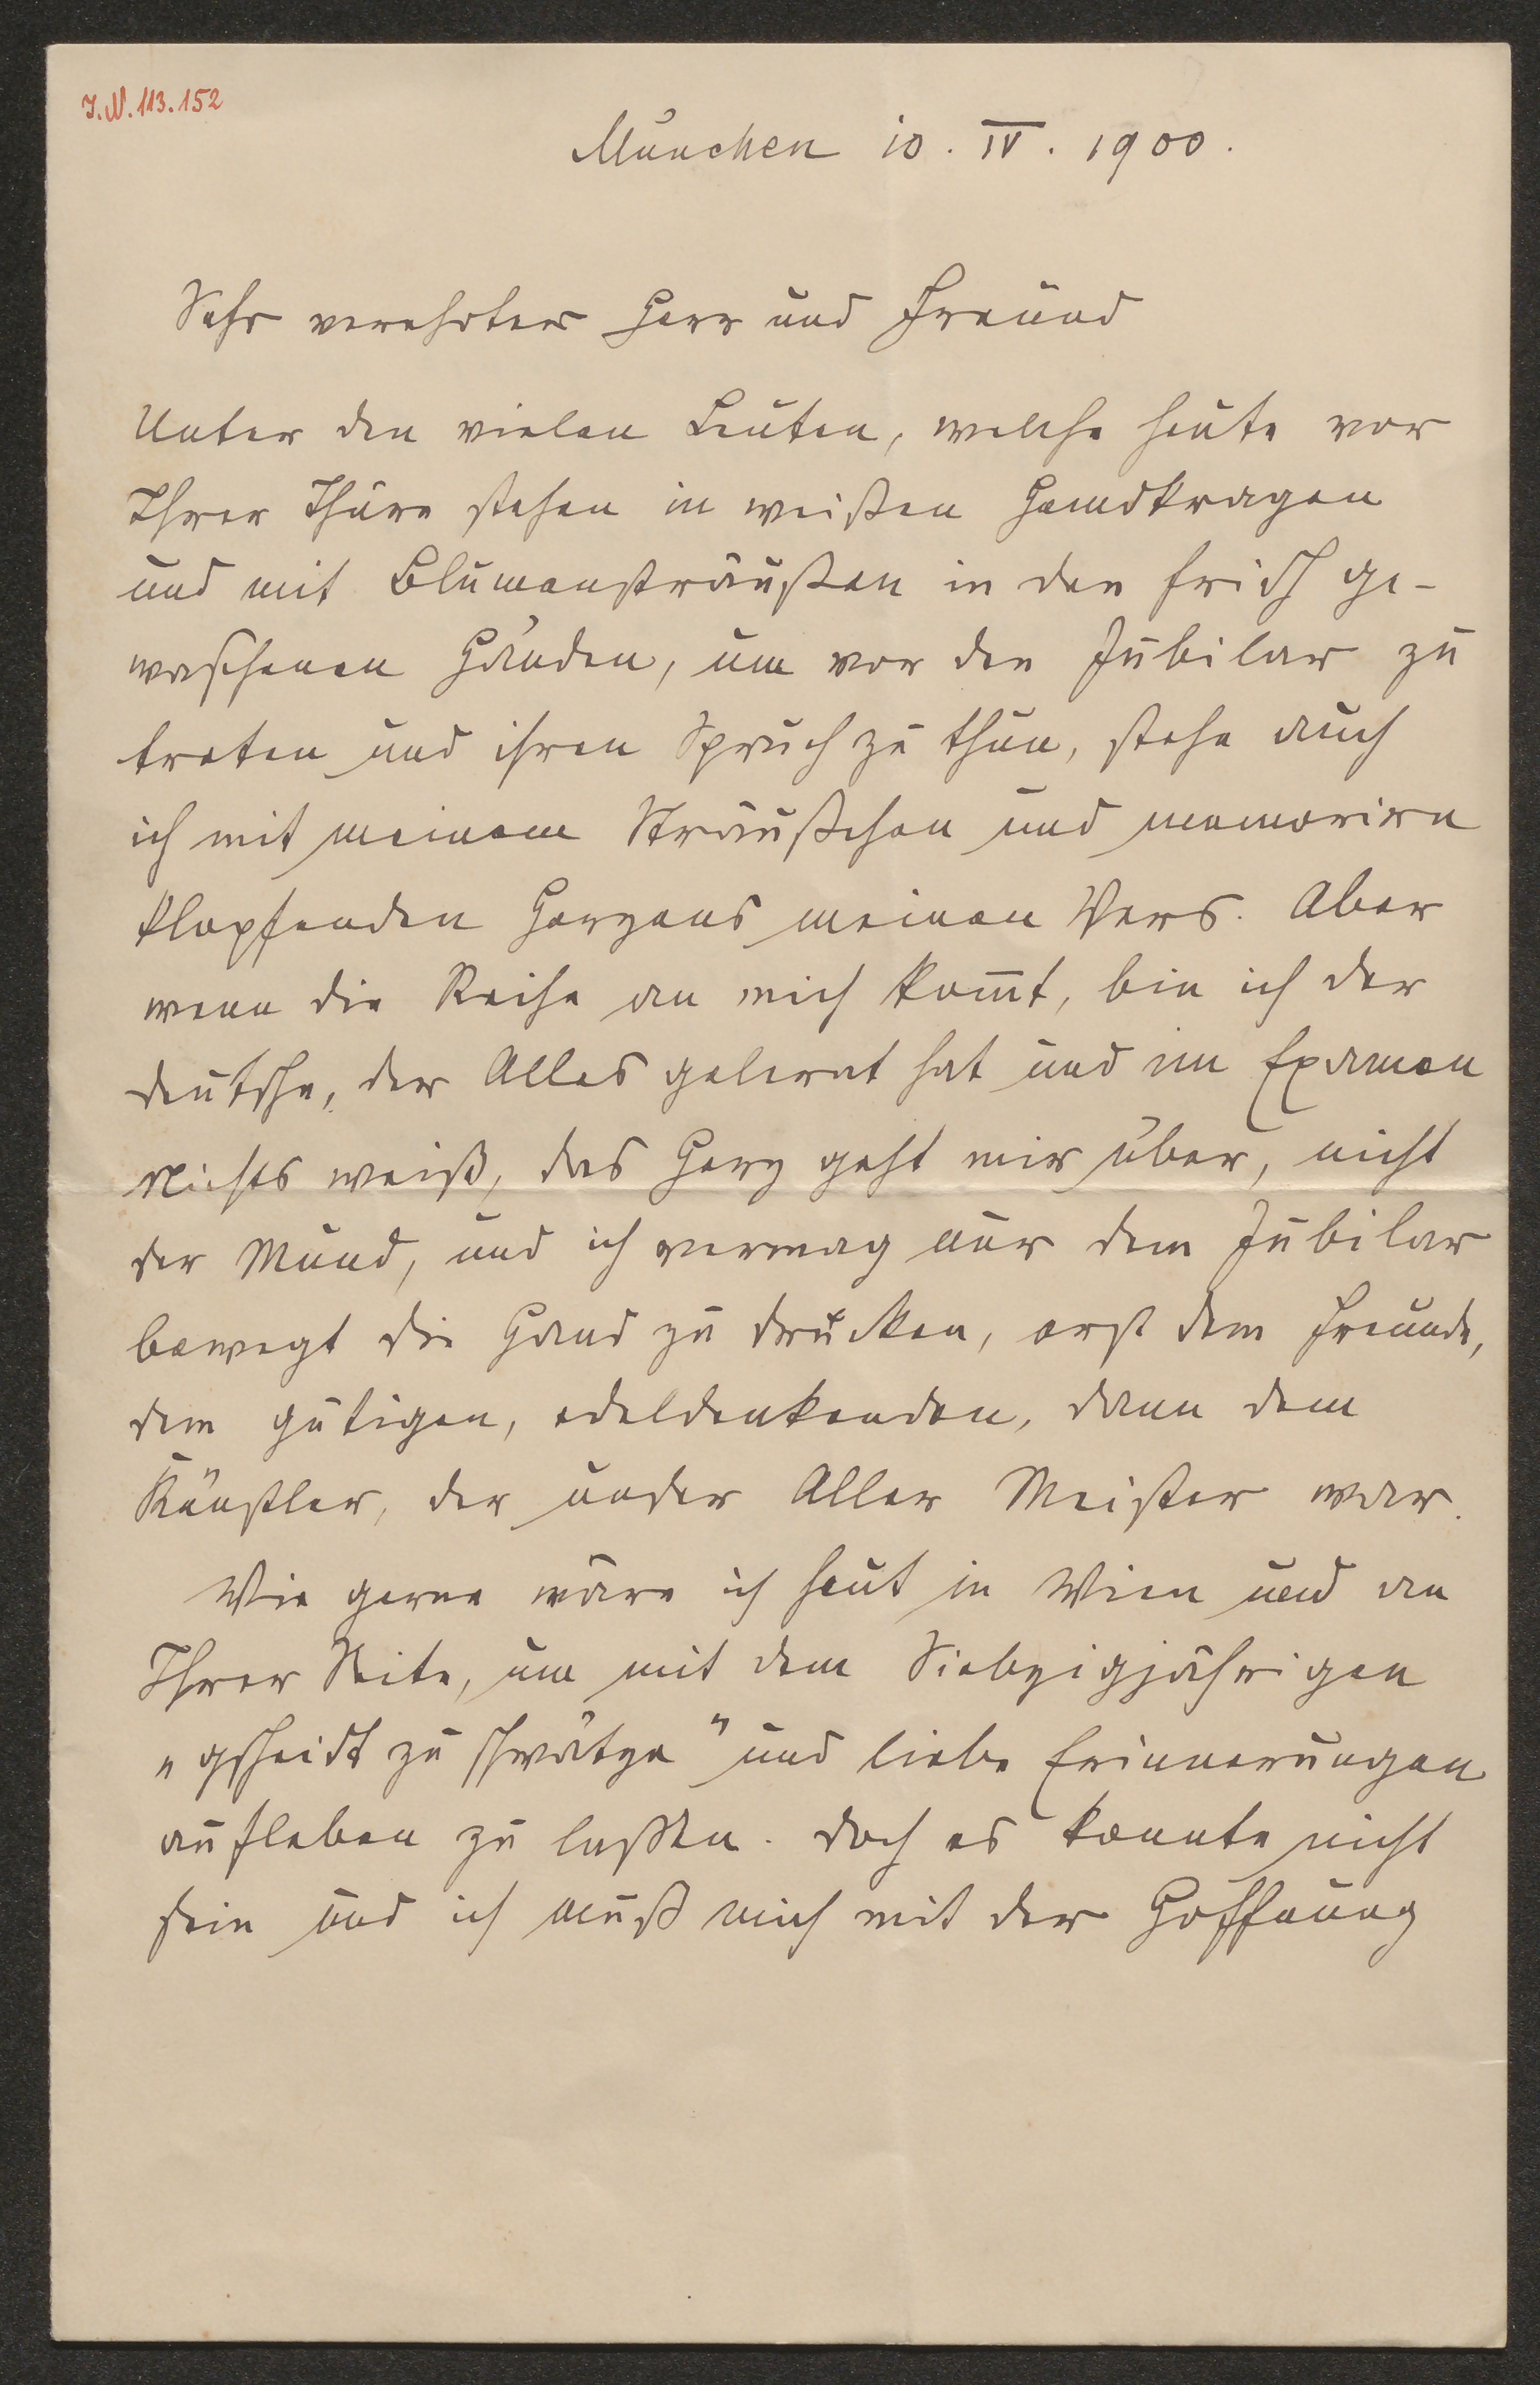 I.N. 113.152
München 10. IV. 1900.
Sehr verehrter Herr und Freund
Unter den vielen Leuten, welche heute vor
Ihrer Thüre stehen in weißen Hemdkragen
und mit Blumensträußen in den frisch ge-
waschenen Händen, um vor den Jubilar zu
treten und ihren Spruch zu thun, stehe auch
ich mit meinem Sträußchen und memorire
klopfenden Herzens meinen Vers. Aber
wenn die Reihe an mich kom̅t, bin ich der
Deutsche, der Alles gelernt hat und im Examen
Nichts weiß, das Herz geht mir über, nicht
der Mund, und ich vermag nur dem Jubilar
bewegt die Hand zu drücken, erst dem Freunde,
dem gütigen, edeldenkenden, dann dem
Künstler, der unser Aller Meister war.
Wie gerne wäre ich heut in Wien und an
Ihrer Seite, um mit dem Siebzigjährigen
„gscheidt zu schwätze" und liebe Erinnerungen
aufleben zu laßen. Doch es konnte nicht
sein und ich muß mich mit der Hoffnung